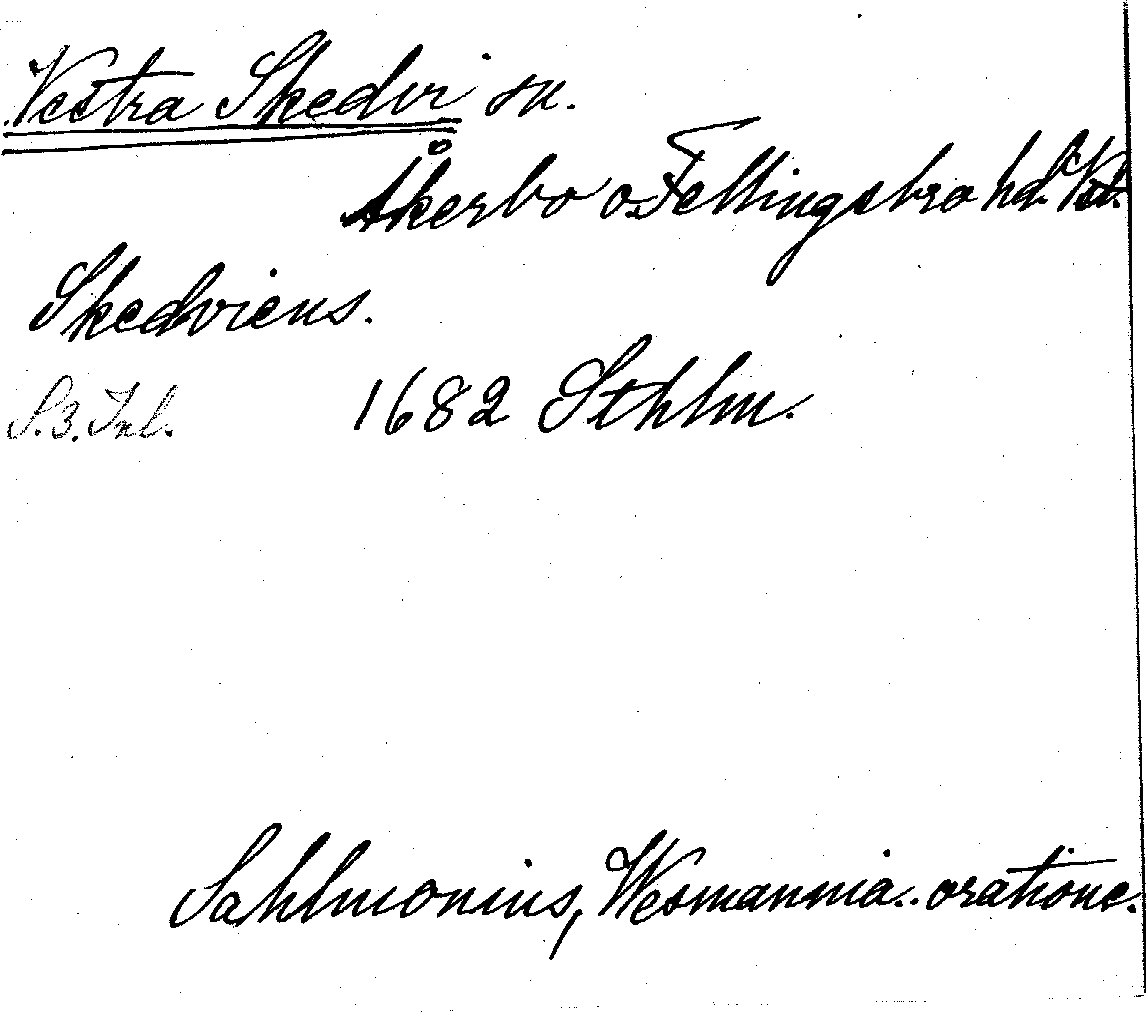 Vestra Skedvi sn.
Åkerbo o. Fellingsbro hd. Vstl.
Skedviens.
S. 3. Inl. 1682 Sthlm.
Sahlmonius, Wesmannia.. oratione.